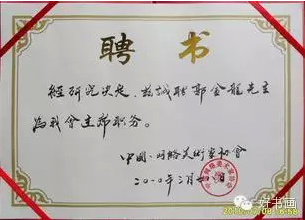 聘书
经研究决定，兹诚聘郭金龙先生
为我会主席职务。
中国·网络美术家协会
二〇一〇年三月
一好书画